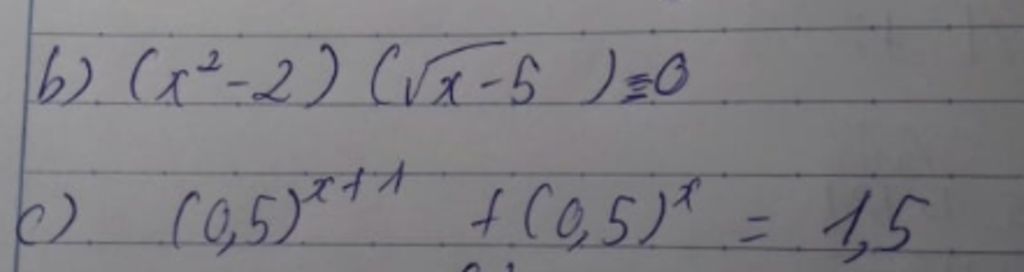 b) (x²-2) (√x-5) = 0
c) (0,5)^{x+1} + (0,5)^x = 1,5